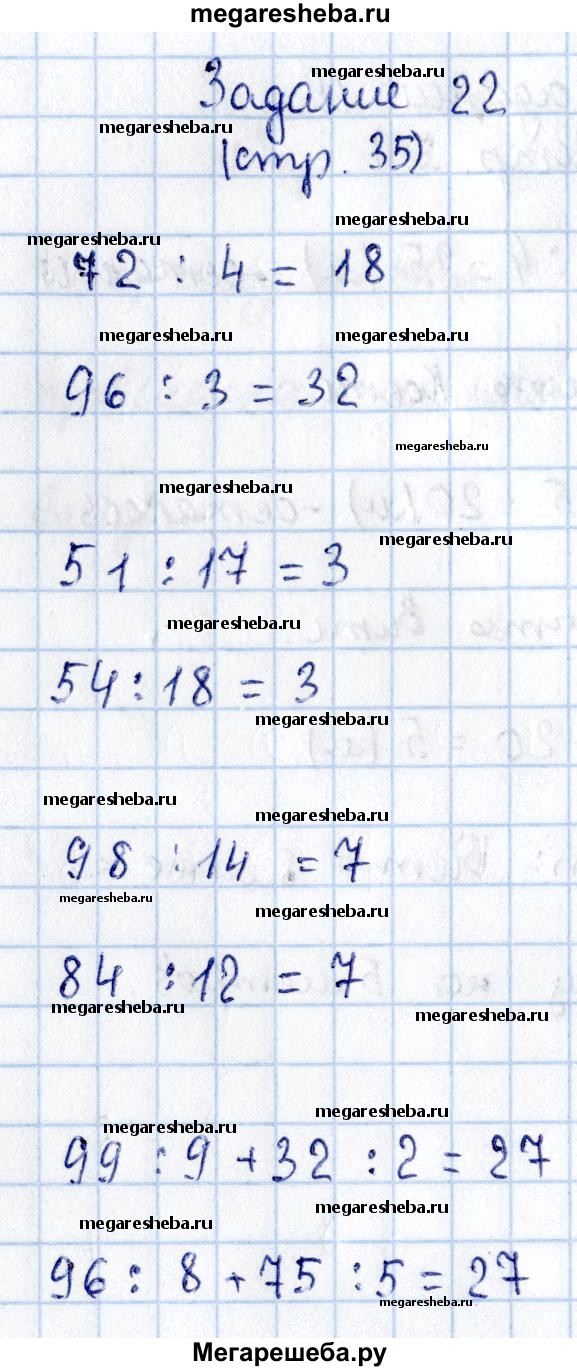 megaresheba.ru
megaresheba.ru
Задание 22
megaresheba.ru
(стр. 35)
megaresheba.ru
megaresheba.ru
72 : 4 = 18
megaresheba.ru megaresheba.ru
96 : 3 = 32
megaresheba.ru
megaresheba.ru
megaresheba.ru
51 : 17 = 3
megaresheba.ru
54 : 18 = 3
megaresheba.ru
megaresheba.ru
megaresheba.ru
98 : 14 = 7
megaresheba.ru
megaresheba.ru
84 : 12 = 7
megaresheba.ru
megaresheba.ru
megaresheba.ru
megaresheba.ru
99 : 9 + 32 : 2 = 27
megaresheba.ru
megaresheba.ru
96 : 8 + 75 : 5 = 27
megaresheba.ru
Мегарешеба.ру